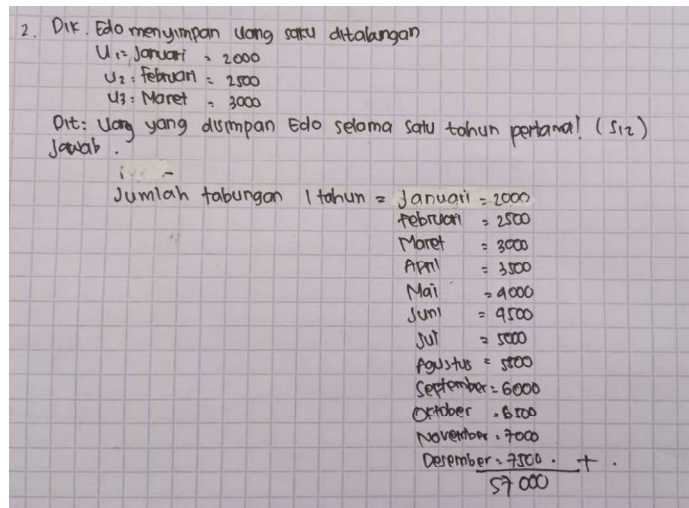 2. Dik. Edo menyimpan uang saku ditabungan
U1 = Januari = 2000
U2 : Februari = 2500
U3 : Maret = 3000
Dit: Uang yang disimpan Edo selama satu tahun pertama! (S12)
Jawab.
Jumlah tabungan 1 tahun = Januari = 2000
Februari = 2500
Maret = 3000
April = 3500
Mai = 4000
Juni = 4500
Jul = 5000
Agustus = 5500
September = 6000
Oktober = 6500
November = 7000
Desember = 7500 . + .
57 000